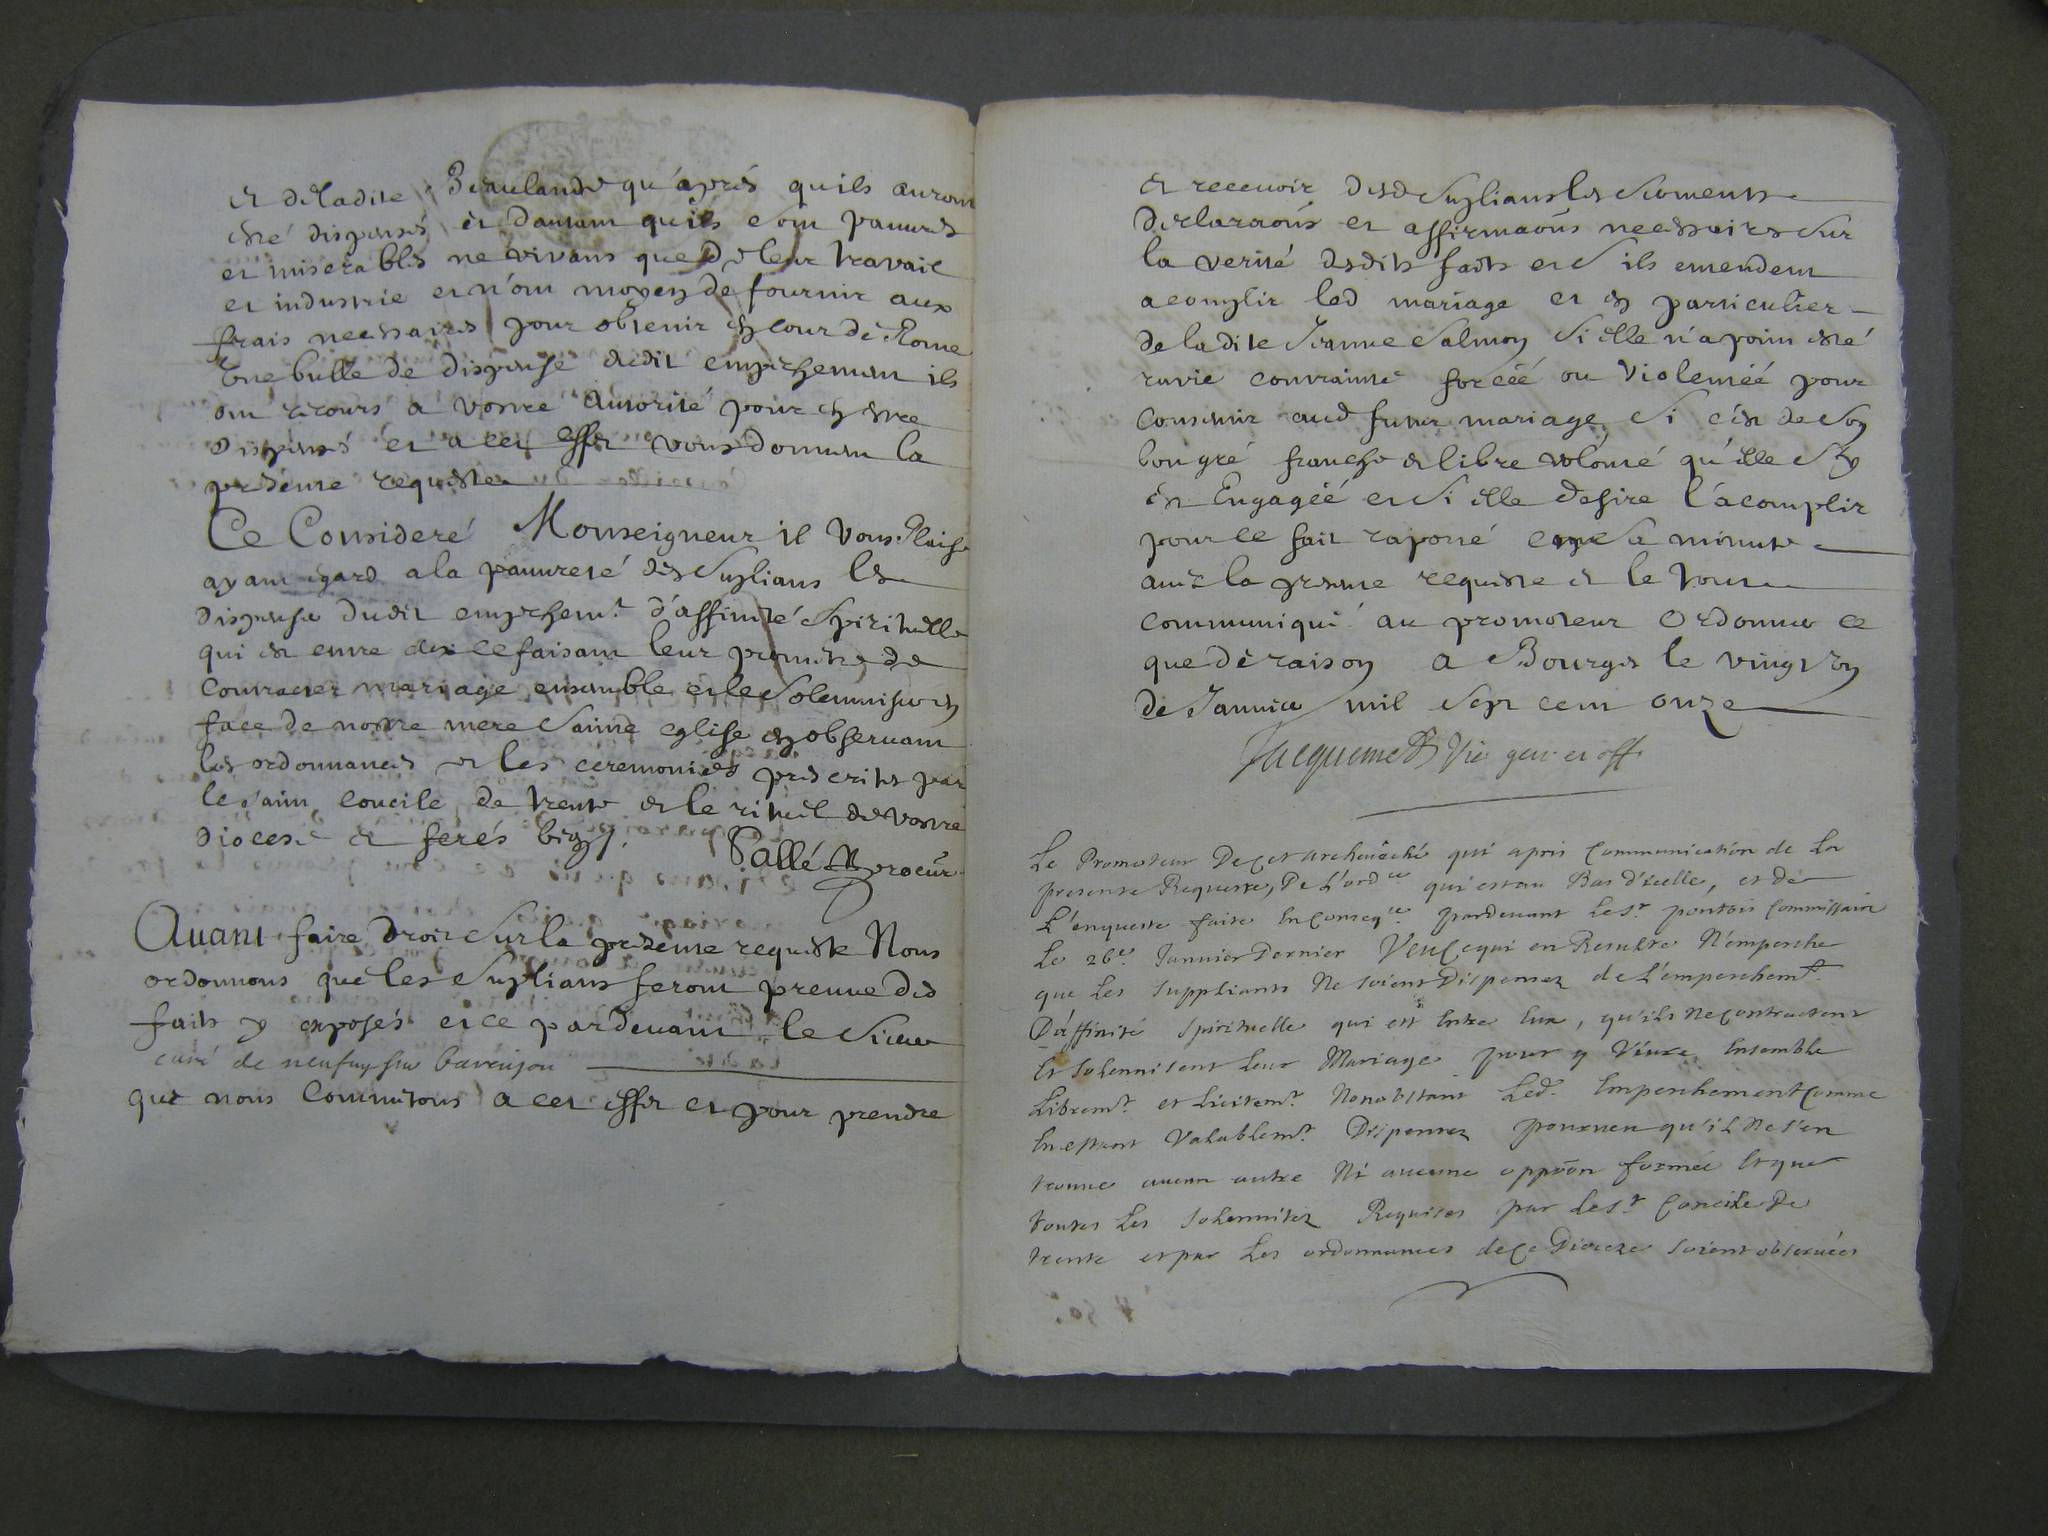 et de ladite Beaulande qu'après quils auront
esté dispensés et dautant quils sont pauvres
et miserables ne vivans que de leur travail
et industrie et n'ont moyen de fournir aux
frais necessaires pour obtenir en cour de Rome
Une bulle de dispense dudit empeschement ils
ont recours a vostre autorité pour en estre
dispensés et a cet effet vous donnent la
presente requeste
Ce Consideré Monseigneur il vous Plaise
ayant egard a la pauvreté des suplians les
dispenser dudit empeschemt d'affinité spirituelle
qui est entre eux ce faisant leur permettre de
contracter mariage ensemble et le solemniser en
face de nostre mere sainte eglise en observant
les ordonnances et les ceremonies prescrites par
le saint concile de trente et le rituel de vostre
diocese et ferés bien
Pallé procur
Avant faire droit sur la presente requeste Nous
ordonnons que les suplians feront preuve des
faits y exposés et ce pardevant le sieur
curé de neufuy sur baranjon
que nous commettons a cet effet et pour prendre
et recevoir desd suplians les serments
declaraons et affirmaons necessaires sur
la verité desdits faits et s'ils entendent
acomplir led mariage et en particulier
de ladite Jeanne Salmon si elle n'a point esté
ravie contrainte forcéé ou violentéé pour
consentir aud futur mariage, si c'est de son
bon gré franche et libre volonté qu'elle s'y
est Engagéé et si elle desire l'acomplir
pour ce fait raporté avec la minute
avec la presente requeste et le tout
communiqué au promoteur Ordonner ce
que de raison a Bourges le vingt
de Janvier mil sept cent onze
Jacquemet vic gen et off
Le Promoteur De cet archevêché qui apris Communication de La
presente Requeste, De L'ordce qui est au Bas d'icelle, et de
L'enqueste faite En Conseqce pardevant Le Sr pontois Commissaire
Le 26e Janvier Dernier Veu Ce qui en Resulte N'empesche
que Les Suppliants Ne soient Dispensez de L'empeschemt
D'affinité Spirituelle qui est Entre Eux, qu'ils ne contractent
Et Solennisent Leur Mariage pour y Vivre Ensemble
Libremt et Licitemt Nonobstant Led Empeschement Comme
En estant Valablemt Dispensez pourveu qu'il Ne s'en
trouve aucun autre Ni aucune oppoõn formée Et que
toutes Les Solennitez Requises par Le St Concile De
trente et par Les ordonnances de Ce Dioceze soient observées